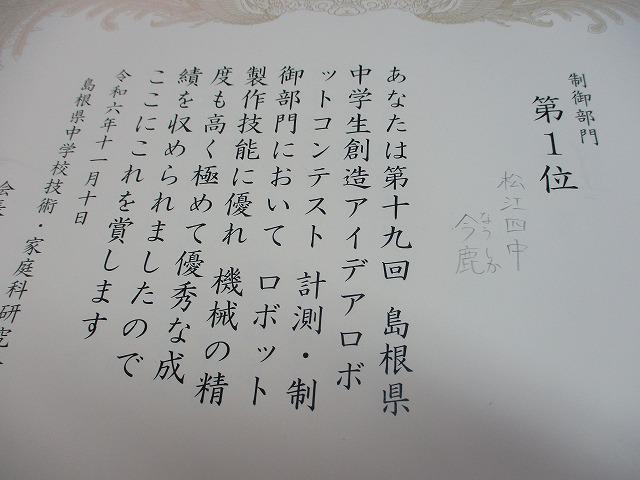 制御部門
第1位
松江四中
なうしか
今鹿
あなたは第十九回 島根県
中学生創造アイデアロボ
ットコンテスト 計測・制
御部門において ロボット
製作技能に優れ 機械の精
度も高く極めて優秀な成
績を収められましたので
ここにこれを賞します
令和六年十一月十日
島根県中学校技術・家庭科研究会
会長